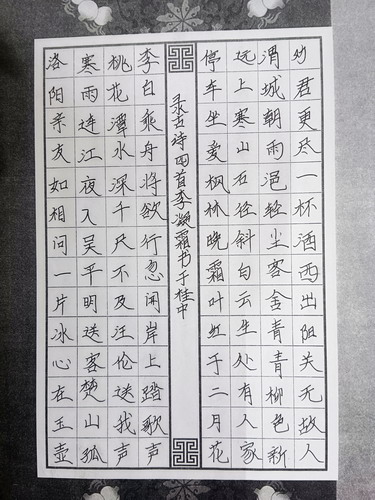 劝君更尽一杯酒西出阳关无故人
渭城朝雨浥轻尘客舍青青柳色新
远上寒山石径斜白云生处有人家
停车坐爱枫林晚霜叶红于二月花
录古诗四首李凝霜书于桂中
李白乘舟将欲行忽闻岸上踏歌声
桃花潭水深千尺不及汪伦送我声
寒雨连江夜入吴平明送客楚山孤
洛阳亲友如相问一片冰心在玉壶